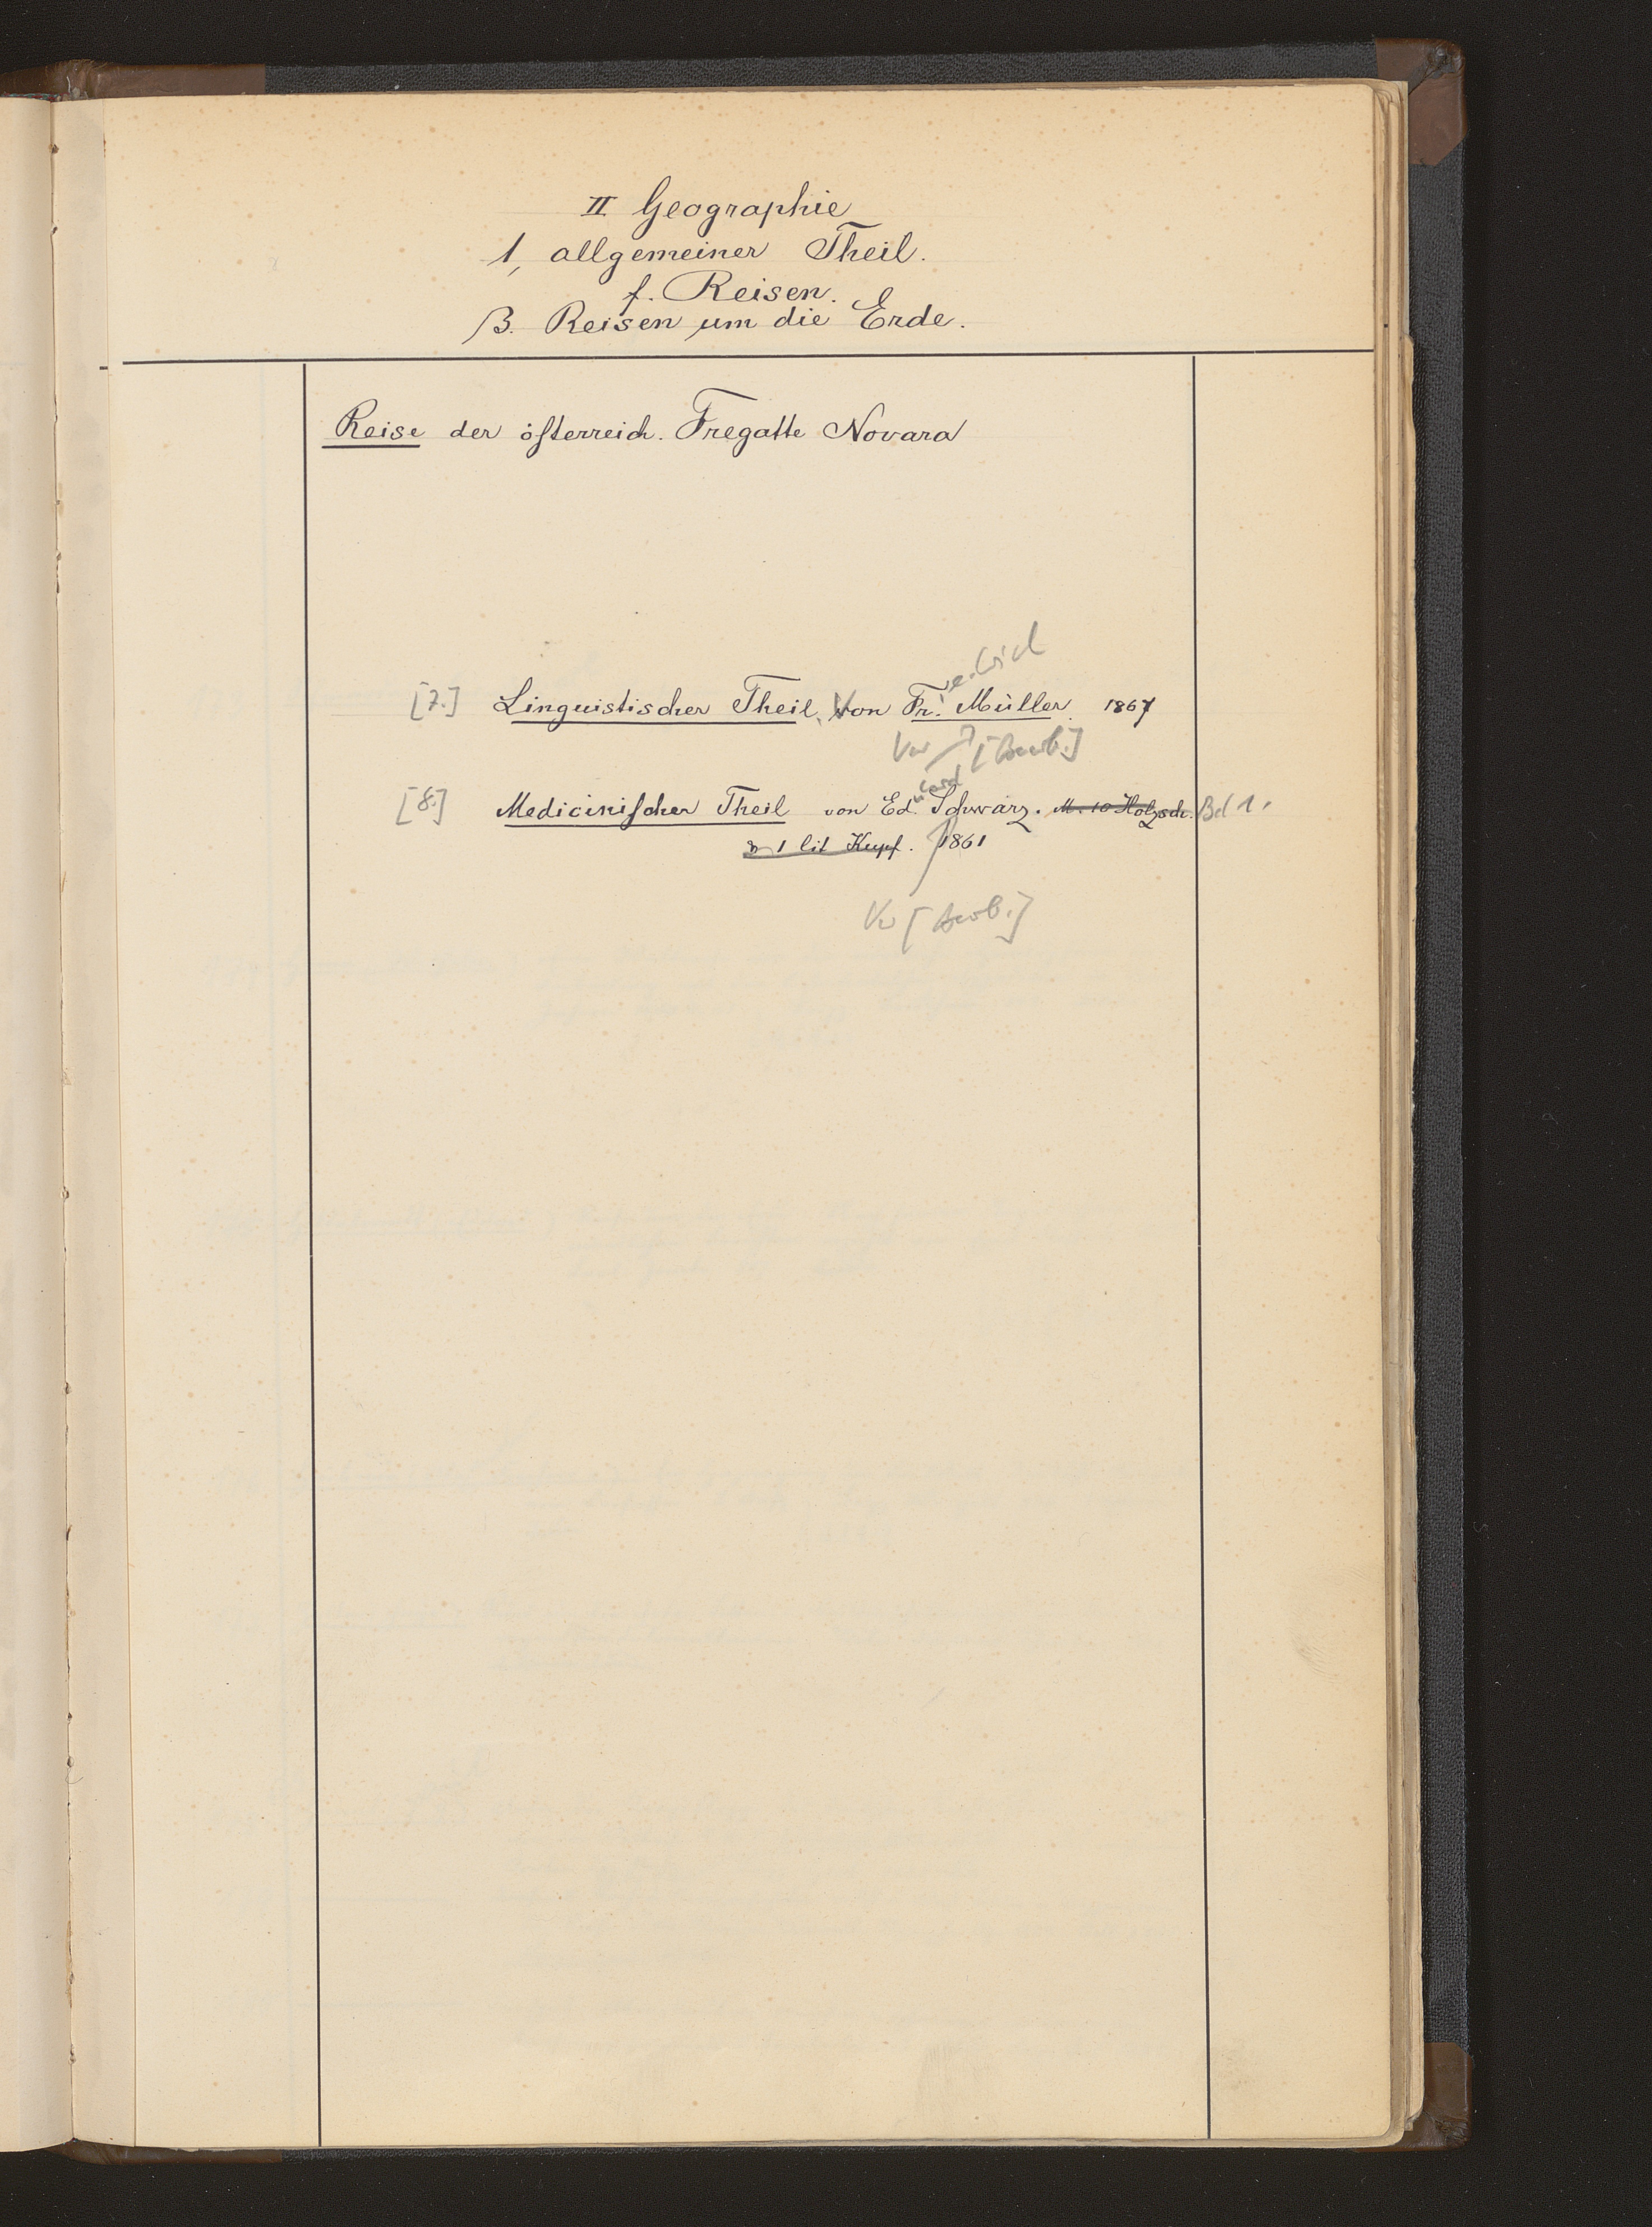 II Geographie
1, allgemeiner Theil.
f. Reisen.
β. Reisen um die Erde.
Reise der österreich. Fregatte Novara
[7.] Linguistischer Theil, Von Fr. Müller 1867
[8.] Medicinischer Theil von Eduard Schwarz. M. 10 Holzsch. Bd 1.
m 1 lit Kupf. 1861